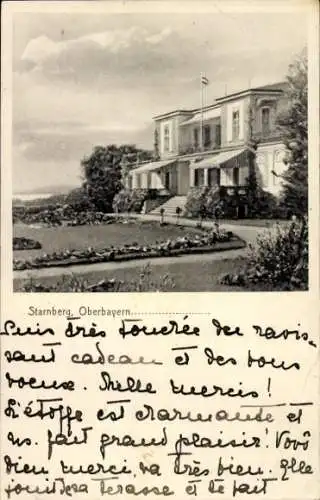 Starnberg, Oberbayern
Suis très touchée du ravis-
sant cadeau et des bons
voeux. Mille mercis!
L'étoffe est charmante et
ns. fait grand plaisir!
Dien merci, va très bien. Elle
jouit sa terasse et le fait